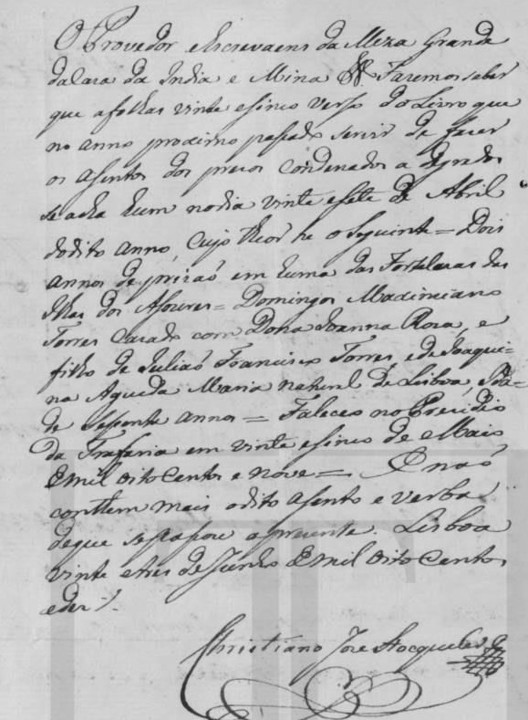 O Provedor e Escrevaens da Meza Grande
da Caza da India e Mina Fazemos saber
que a folhas vinte e sinco verso do Livro que
no anno proximo pasado servio de fazer
os asentos dos prezos condenados a degredos
se acha hum no dia vinte e sete de Abril
do dito anno, Cujo theor he o Seguinte = Dois
annos de prizaõ em huma das Fortalezas das
Ilhas dos Asoures = Domingos Maximiano
Torres Cazado com Dona Joanna Roza, e
filho de Juliaõ Francisco Torres, e de Joaqui-
na Agueda Maria natural de Lisboa, Ida-
de Sesenta annos = Faleceo no Prezidio
da Trafaria em vinte e sinco de Maio
E mil oito Centos e nove =. E naõ
contem mais o dito asento e verba
de que se pasou a prezente. Lisboa
vinte e tres de Junho E mil oito Centos
e dez.
Christiano Joze